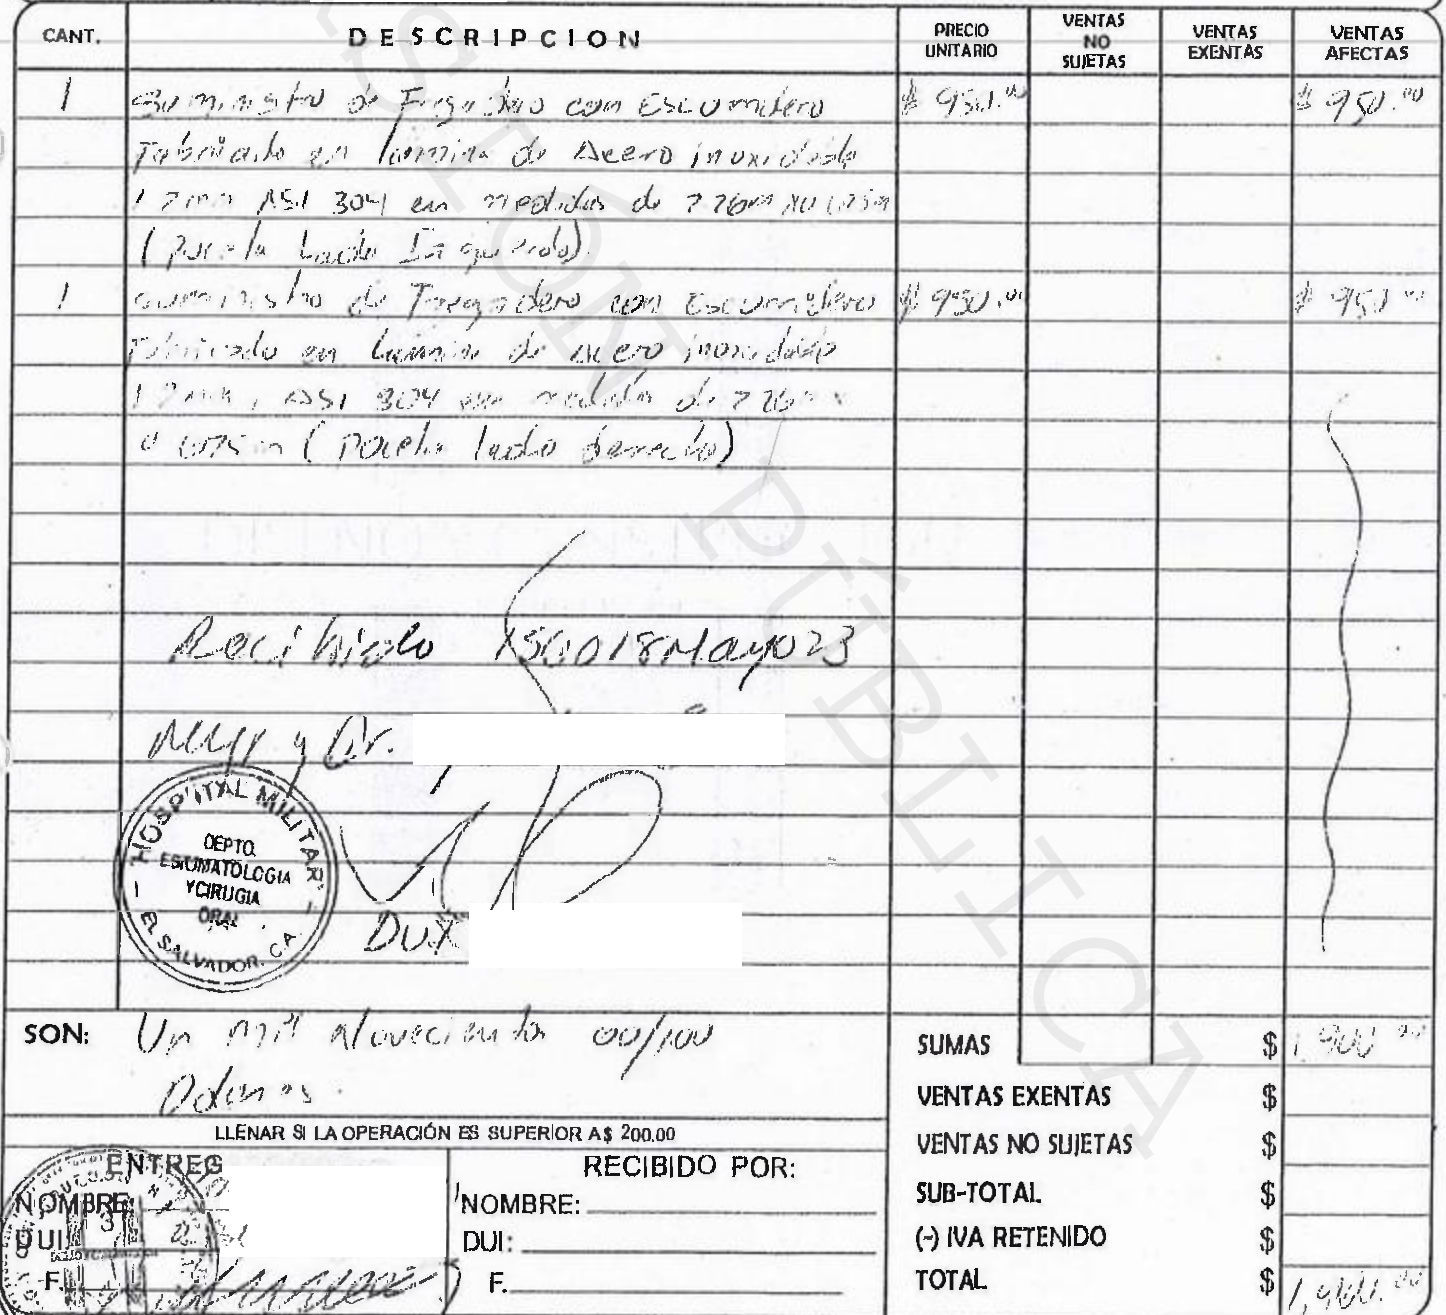 CANT. DESCRIPCION PRECIO UNITARIO VENTAS NO SUJETAS VENTAS EXENTAS VENTAS AFECTAS
1 Suministro de Fregadero con Escurridero $ 950.00 $ 950.00
Fabricado en lamina de Acero inoxidable
1.2mm ASI 304 en medidas de
(Poceta Lado Izquierdo)
1 Suministro de Fregadero con Escurridero $ 950.00 $ 950.00
Fabricado en Lamina de acero inoxidable
1.2mm, ASI 304 en medidas de
(Poceta lado derecho)
Recibido 18Mayo23
y Dr.
HOSPITAL MILITAR
DEPTO.
ESTOMATOLOGIA
Y CIRUGIA
ORAL
EL SALVADOR, C.A.
DUI
SON: Un mil Novecientos 00/100
Dolares.
SUMAS $ 1,900.00
VENTAS EXENTAS $
VENTAS NO SUJETAS $
SUB-TOTAL $
(-) IVA RETENIDO $
TOTAL $ 1,900.00
LLENAR SI LA OPERACIÓN ES SUPERIOR A $ 200.00
ENTREG
NOMBRE:
DUI:
F.
RECIBIDO POR:
NOMBRE:
DUI:
F.
SIÓN PÚBLICA